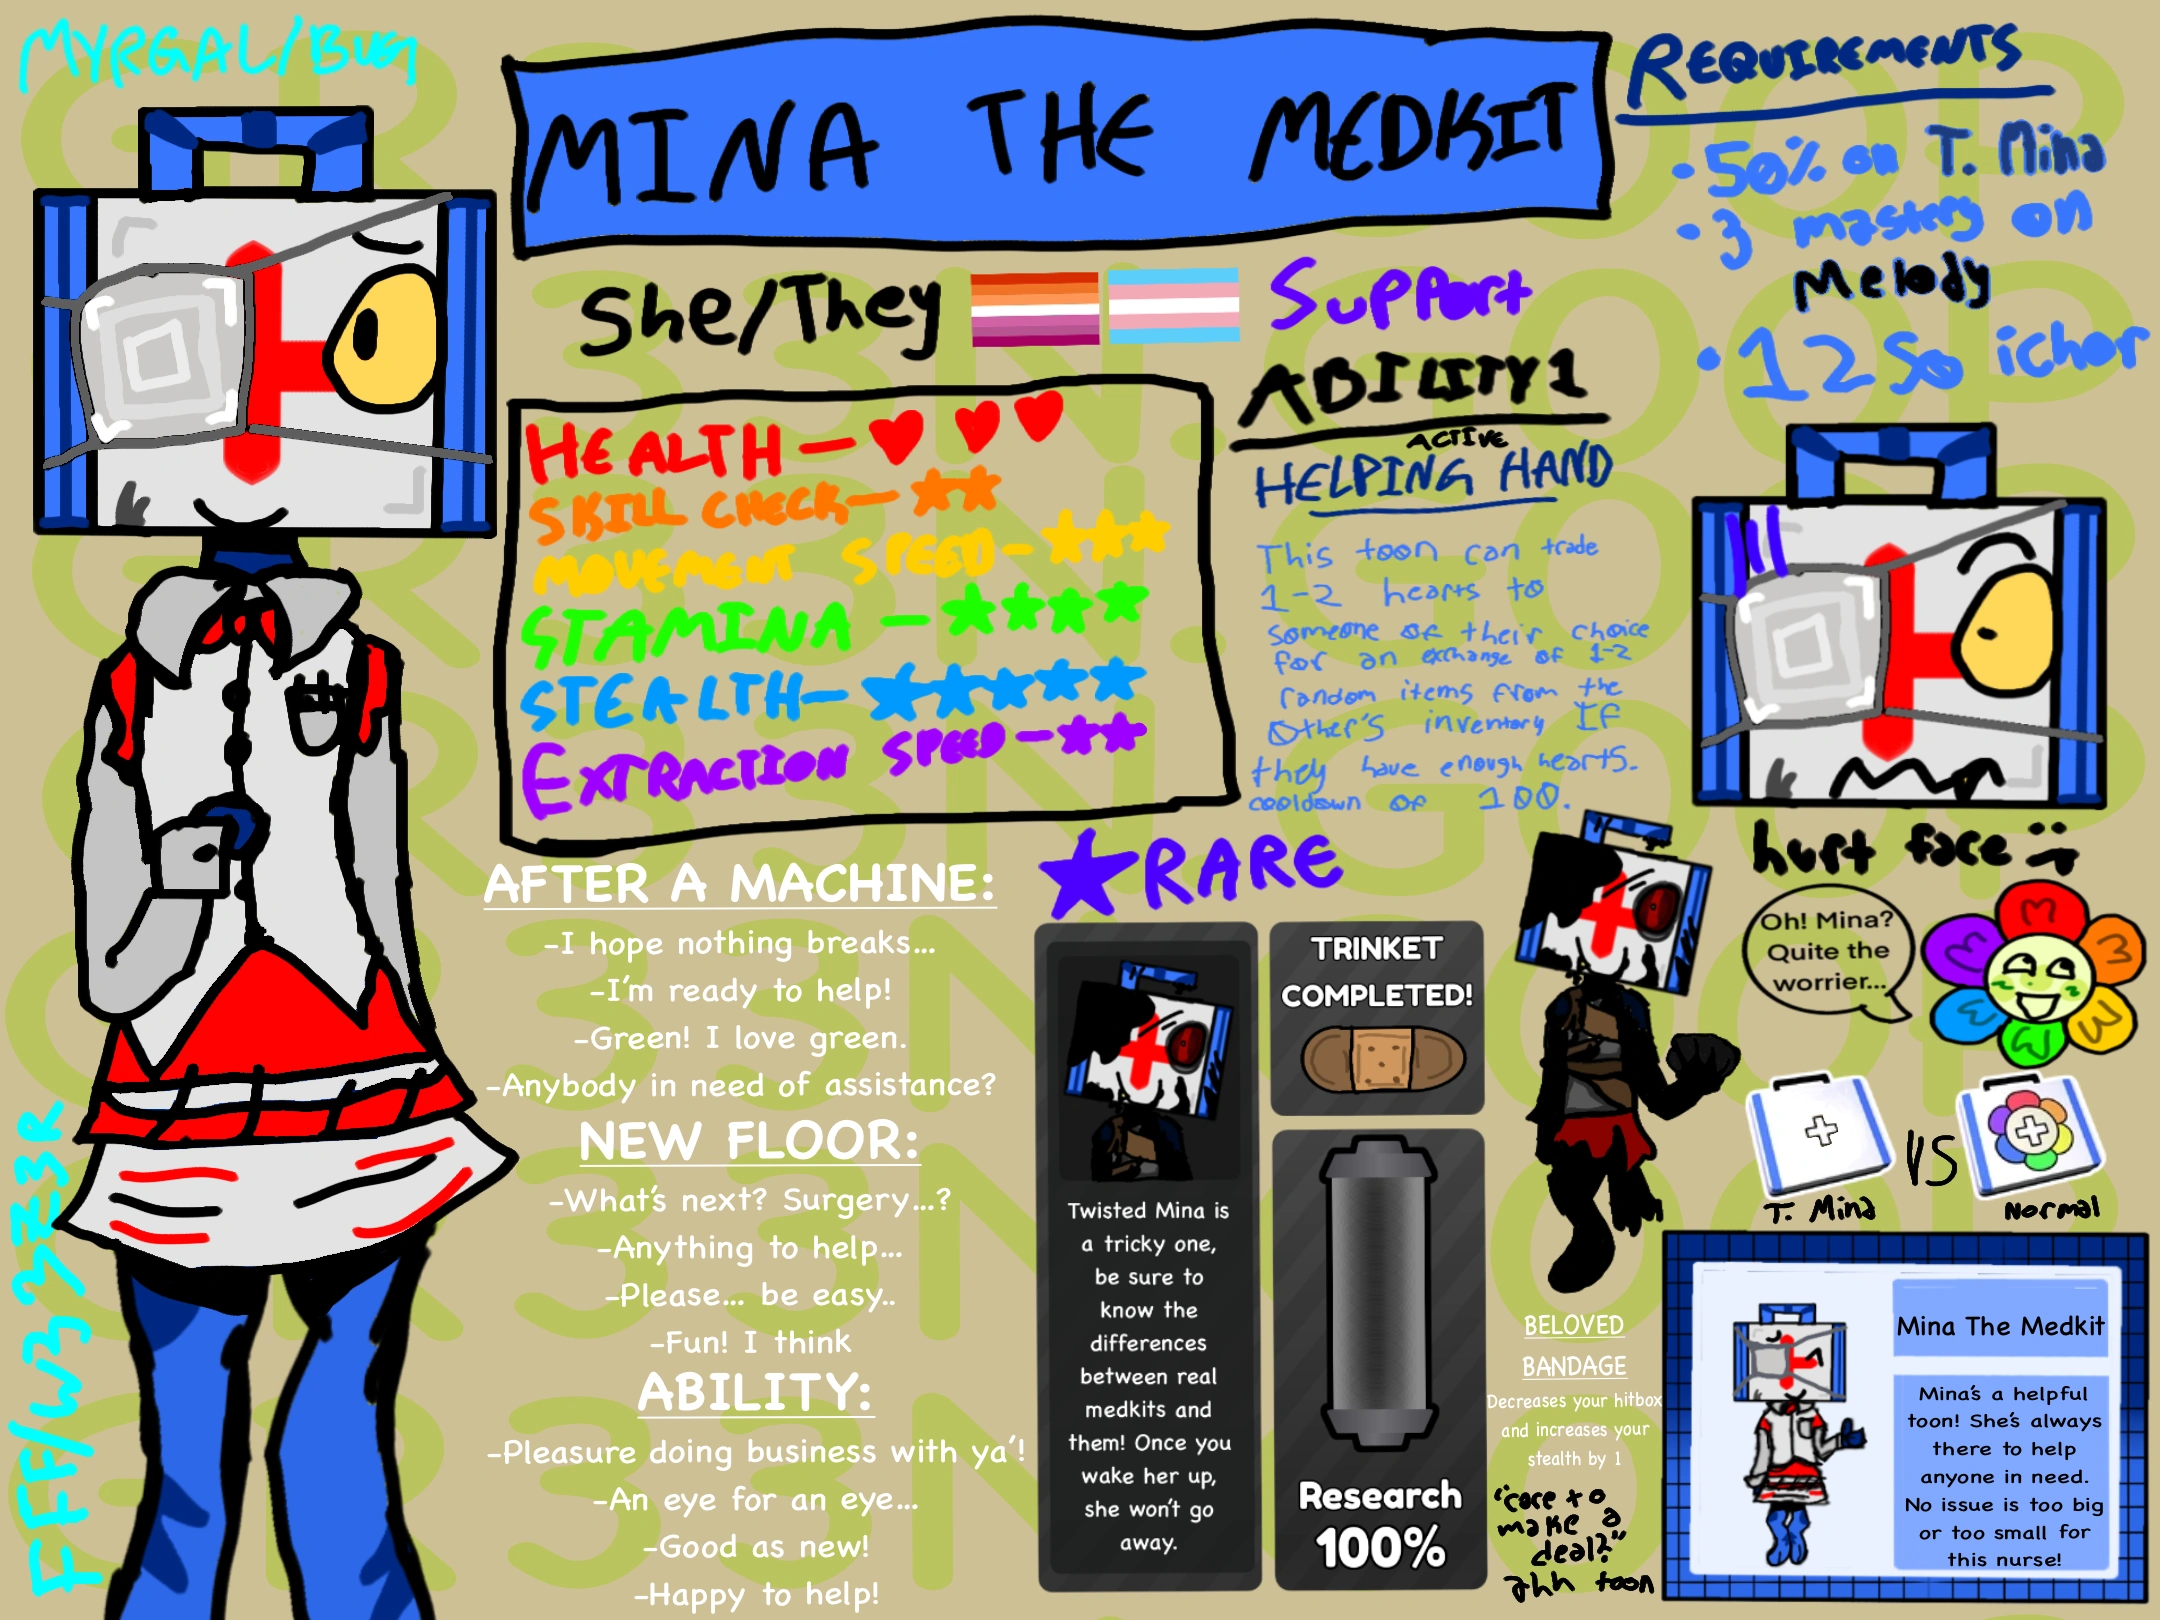 MYRGAL/BUG
MINA THE MEDKIT
REQUIREMENTS
• 50% on T. Mina
• 3 mastery on
Melody
• 1250 ichor
She/They
Support
HEALTH—
SKILL CHECK—
MOVEMENT SPEED—
STAMINA —
STEALTH—
EXTRACTION SPEED—
ABILITY 1
ACTIVE
HELPING HAND
This toon can trade
1-2 hearts to
someone of their choice
for an exchange of 1-2
random items from the
Other's inventory IF
they have enough hearts.
cooldown of 100.
hurt face :(
RARE
AFTER A MACHINE:
-I hope nothing breaks...
-I'm ready to help!
-Green! I love green.
-Anybody in need of assistance?
NEW FLOOR:
-What's next? Surgery...?
-Anything to help...
-Please... be easy..
-Fun! I think
ABILITY:
-Pleasure doing business with ya'!
-An eye for an eye...
-Good as new!
-Happy to help!
Twisted Mina is
a tricky one,
be sure to
know the
differences
between real
medkits and
them! Once you
wake her up,
she won't go
away.
TRINKET
COMPLETED!
Research
100%
Oh! Mina?
Quite the
worrier...
VS
T. Mina
Normal
BELOVED
BANDAGE
Decreases your hitbox
and increases your
stealth by 1
"care to
make a
deal?"
ahh toon
Mina The Medkit
Mina's a helpful
toon! She's always
there to help
anyone in need.
No issue is too big
or too small for
this nurse!
FFF/w33Z3R
GR33N.GOOP